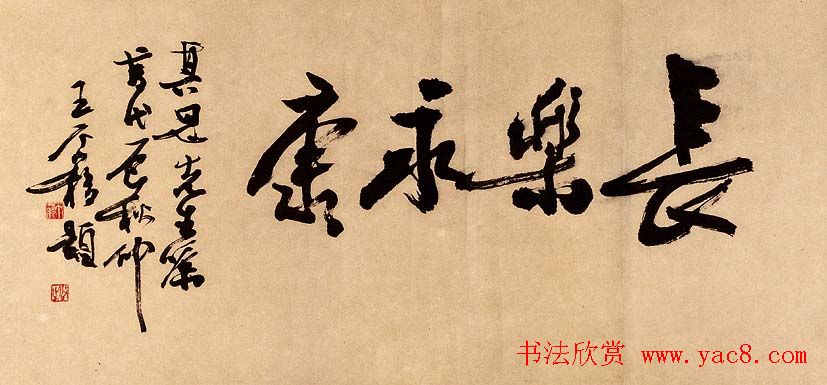 長樂永康
先生
戊辰秋仲
王 題
书法欣赏 www.yac8.com